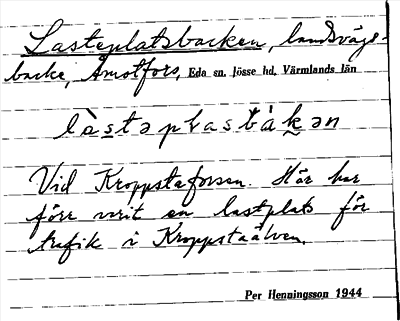 Lasteplatsbacken, landsvägs-
backe, Åmotfors, Eda sn. Jösse hd. Värmlands län
làstəplastbákən
Vid Kroppstaforsen. Här har
förr varit en lastplats för
trafik i Kroppstaälven.
Per Henningsson 1944